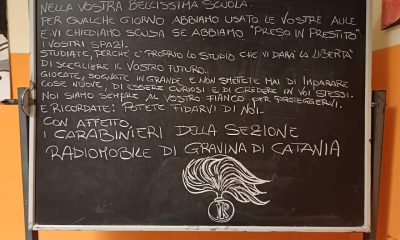 NELLA VOSTRA BELLISSIMA SCUOLA.
PER QUALCHE GIORNO ABBIAMO USATO LE VOSTRE AULE
E VI CHIEDIAMO SCUSA SE ABBIAMO "PRESO IN PRESTITO"
I VOSTRI SPAZI.
STUDIATE, PERCHÉ È PROPRIO LO STUDIO CHE VI DARÀ LA LIBERTÀ
DI SCEGLIERE IL VOSTRO FUTURO.
GIOCATE, SOGNATE IN GRANDE E NON SMETETE MAI DI IMPARARE
COSE NUOVE, DI ESSERE CURIOSI E DI CREDERE IN VOI STESSI.
NOI SIAMO SEMPRE AL VOSTRO FIANCO PER PROTEGGERVI.
E RICORDATE: POTETE FIDARVI DI NOI.
CON AFFETTO,
I CARABINIERI DELLA SEZIONE
RADIOMOBILE DI GRAVINA DI CATANIA